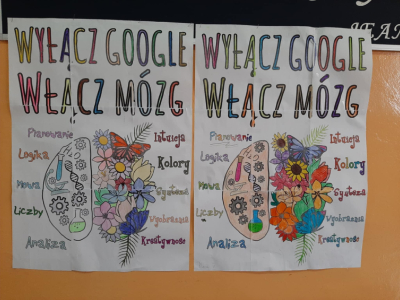 WYŁĄCZ GOOGLE
WŁĄCZ MÓZG
Planowanie
Logika
Mowa
Liczby
Analiza
Intuicja
Kolory
Synteza
Wyobraźnia
Kreatywność
WYŁĄCZ GOOGLE
WŁĄCZ MÓZG
Planowanie
Logika
Mowa
Liczby
Analiza
Intuicja
Kolory
Synteza
Wyobraźnia
Kreatywność